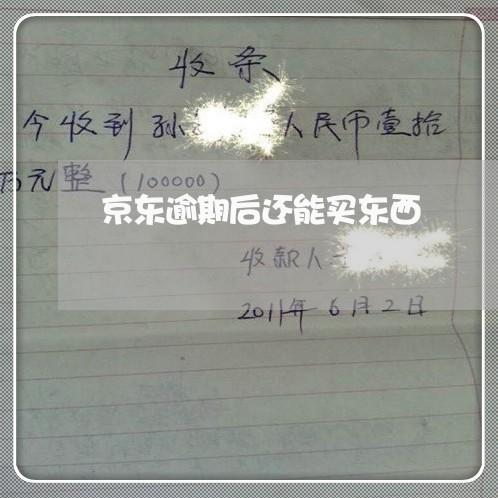 收条
今收到孙 人民币壹拾
万元整（100000）
京东逾期后还能买东西
收款人
2011年6月2日